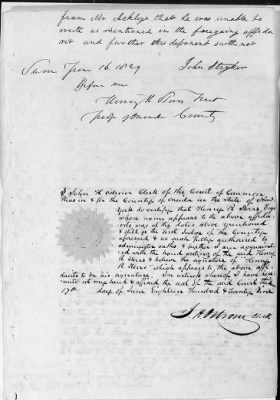 from Mr Ackleys that he was unable to
write as mentioned in the foregoing affida
vit and further this deponent saith not
Sworn June 16. 1829 John Stryker
Before me
Henry R Storrs first
Judge of Oneida County
I, John H Osborn Clerk of the Court of Common
Pleas in & for the County of Oneida in the State of New
York do certify that Henry R Storrs, Esqr
whose name appears to the above affida
vits was at the dates above mentioned
& still is the first Judge of the County
aforesaid & as such fully authorized to
administer oaths & further I am acquaint
ed with the hand writing of the said Henry
R Storrs & believe the signature of "Henry
R Storrs" which appears to the above affi
davits to be his signature. In witness whereof I have here
unto set my hand & affixed the seal of the said Court this
17th day of June Eighteen Hundred & twenty Nine
J H Osborn Clerk